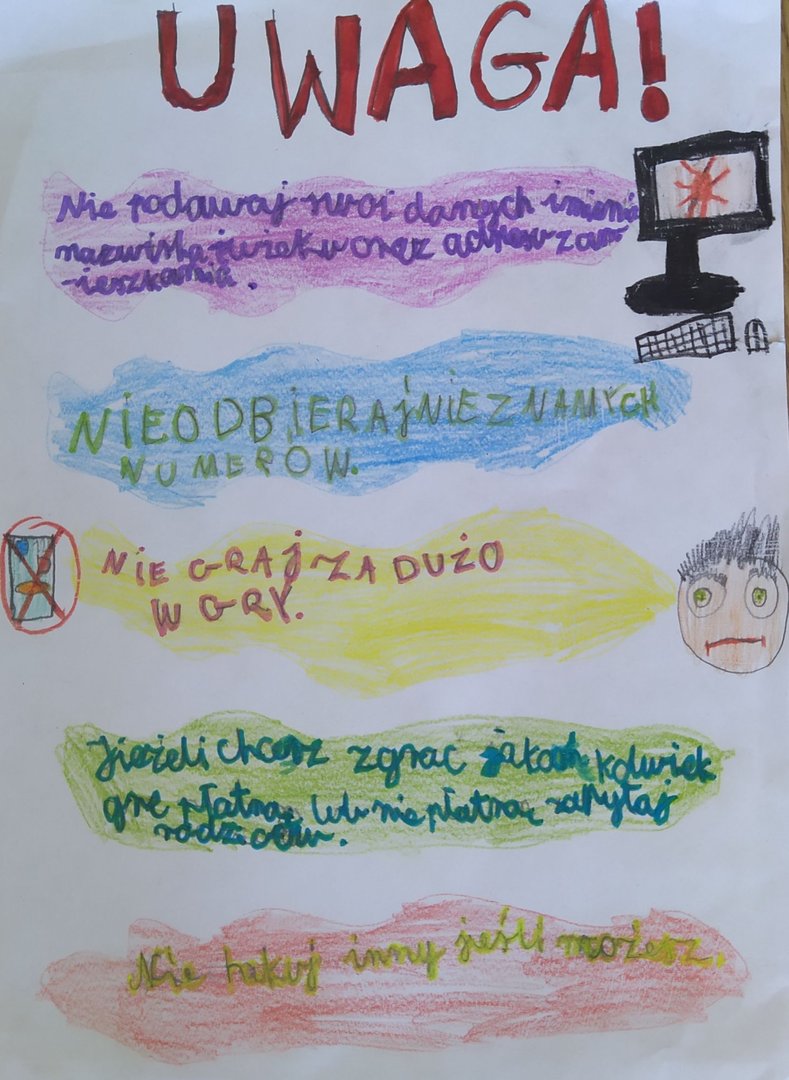 UWAGA!
Nie podawaj swoi danych imienia
nazwiska, oraz adresu zam
ieszkania.
NIEODBIERAJNIEZNAMYCH
NUMEROW.
NIE GRAJ ZA DUŻO
W GRY.
Jieżeli chcesz zgrac jakoś kolwiek
gre płatną lub nie płatną zapytaj
rodziców.
Nie hakuj inny jeśli możesz.